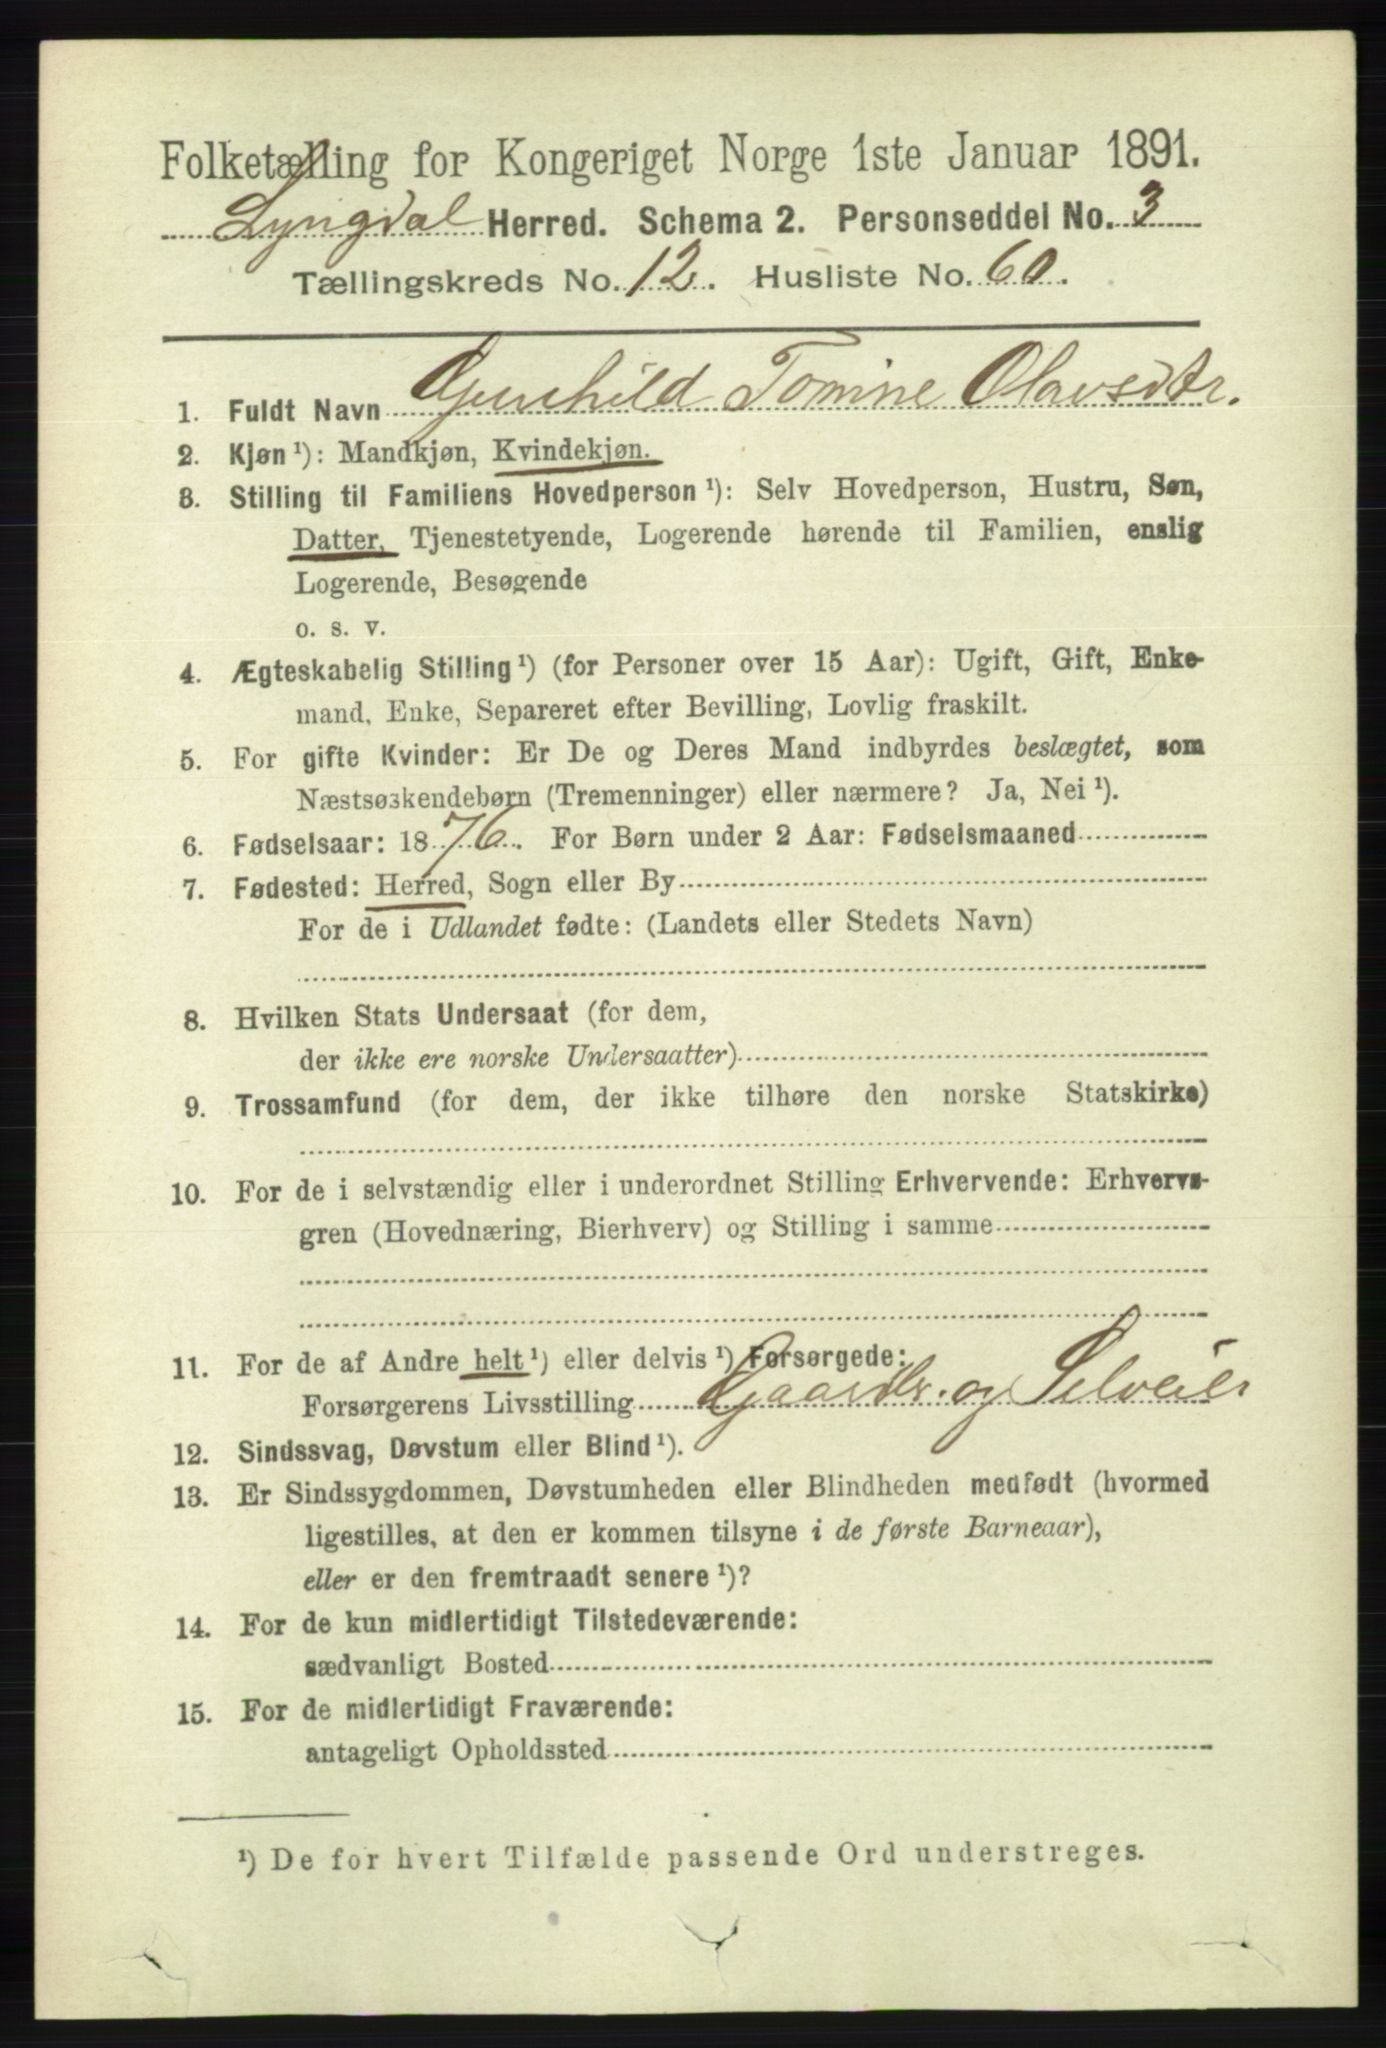 Folketælling for Kongeriget Norge 1ste Januar 1891.
Lyngdal Herred. Schema 2. Personseddel No. 3
Tællingskreds No. 12. Husliste No. 60.
1. Fuldt Navn Gunhild Tomine Olavsdtr.
2. Kjøn ¹): Mandkjøn, Kvindekjøn.
3. Stilling til Familiens Hovedperson ¹): Selv Hovedperson, Hustru, Søn,
Datter, Tjenestetyende, Logerende hørende til Familien, enslig
Logerende, Besøgende
o. s. v.
4. Ægteskabelig Stilling ¹) (for Personer over 15 Aar): Ugift, Gift, Enke-
mand, Enke, Separeret efter Bevilling, Lovlig fraskilt.
5. For gifte Kvinder: Er De og Deres Mand indbyrdes beslægtet, som
Næstsøskendebørn (Tremenninger) eller nærmere? Ja, Nei ¹).
6. Fødselsaar: 1876. For Børn under 2 Aar: Fødselsmaaned
7. Fødested: Herred, Sogn eller By
For de i Udlandet fødte: (Landets eller Stedets Navn)
8. Hvilken Stats Undersaat (for dem,
der ikke ere norske Undersaatter)
9. Trossamfund (for dem, der ikke tilhøre den norske Statskirke)
10. For de i selvstændig eller i underordnet Stilling Erhvervende: Erhvervs-
gren (Hovednæring, Bierhverv) og Stilling i samme
11. For de af Andre helt ¹) eller delvis ¹) Forsørgede:
Forsørgerens Livsstilling Gaardbr. og Selveier
12. Sindssvag, Døvstum eller Blind ¹).
13. Er Sindssygdommen, Døvstumheden eller Blindheden medfødt (hvormed
ligestilles, at den er kommen tilsyne i de første Barneaar),
eller er den fremtraadt senere ¹)?
14. For de kun midlertidigt Tilstedeværende:
sædvanligt Bosted
15. For de midlertidigt Fraværende:
antageligt Opholdssted
¹) De for hvert Tilfælde passende Ord understreges.